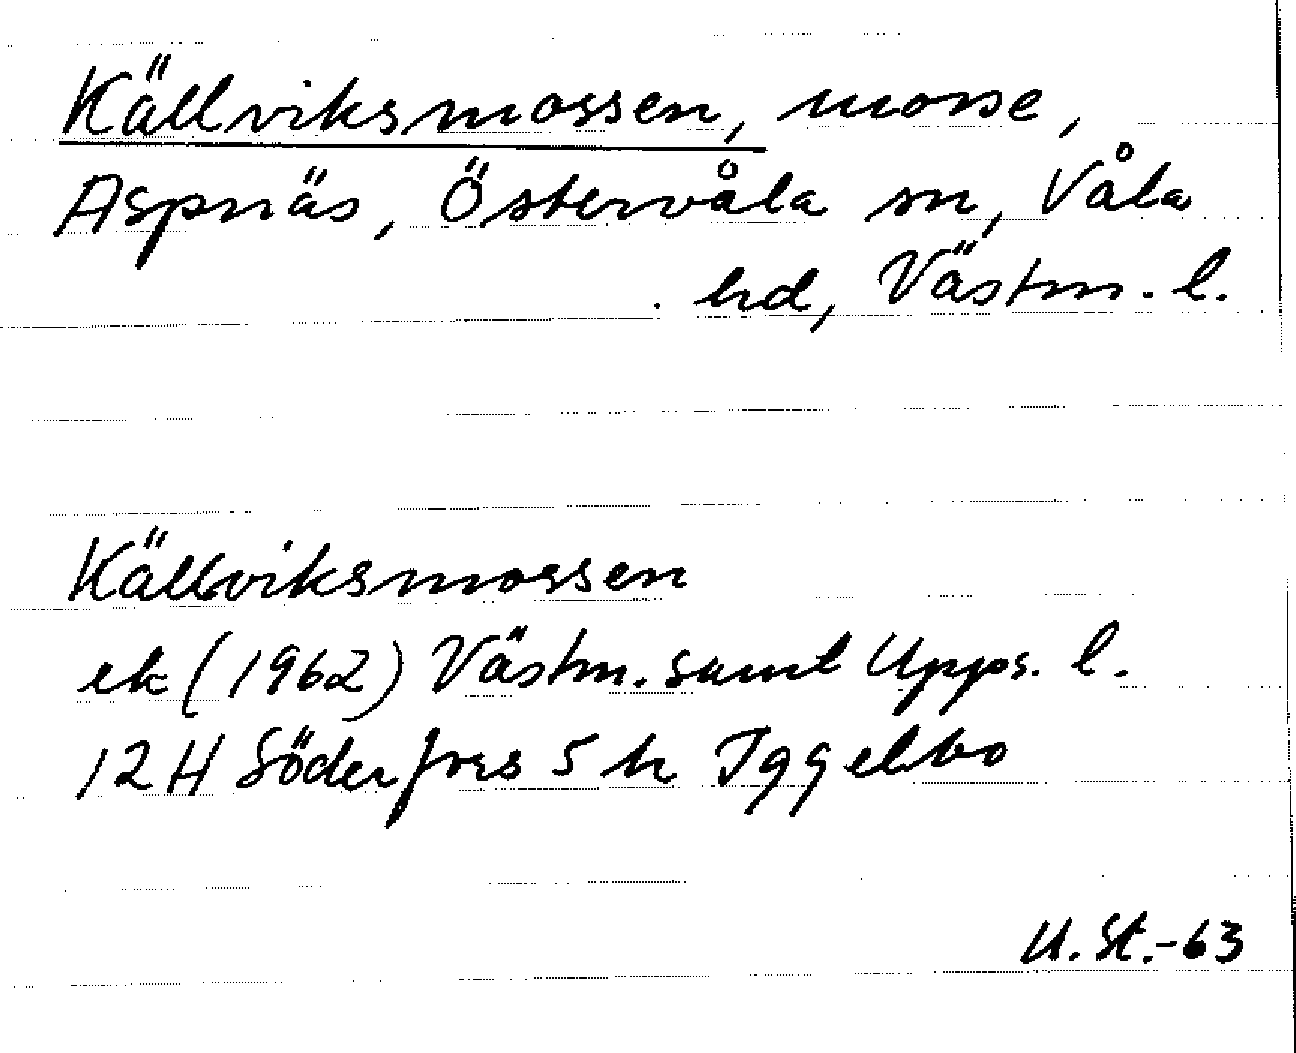 Källviksmossen, mosse,
Aspnäs, Östervåla sn, Våla
hd, Västm. l.
Källviksmossen
ek (1962) Västm. samt Upps. l.
12H Söderfors 5 h Iggelbo
U. St.-63